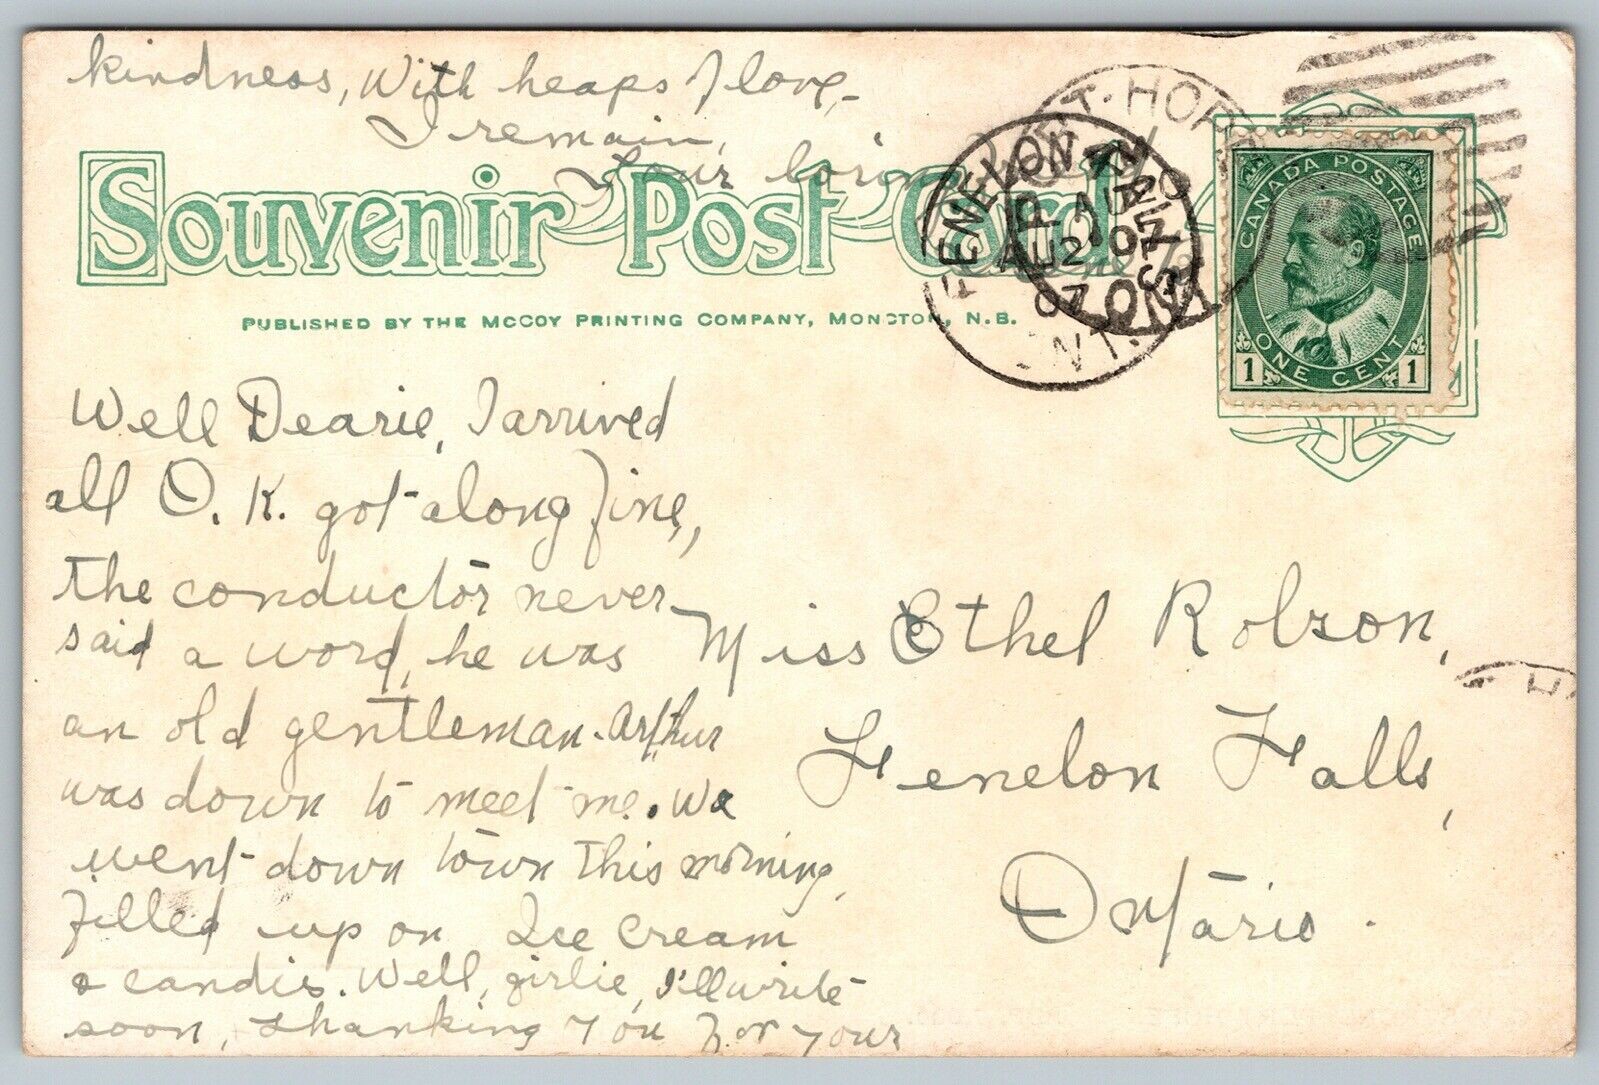 kindness, With heaps of love,-
I remain,
Your lovin
Souvenir Post Card
PUBLISHED BY THE McCOY PRINTING COMPANY, MONCTON, N.B.
HOP
FENELON
AU 2
07
ONT.
CANADA POSTAGE
1 ONE CENT 1
Well Dearie, I arrived
all O.K. got along fine,
the conductor never
said a word, he was
an old gentleman. Arthur
was down to meet me. We
went down town this morning,
filled up on Ice Cream
& candis. Well, girlie, I'll write
soon, thanking you for your
Miss Ethel Rolson,
Fenelon Falls,
Ontario.